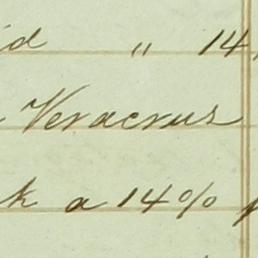 id " 14
Veracrus
k a 14%